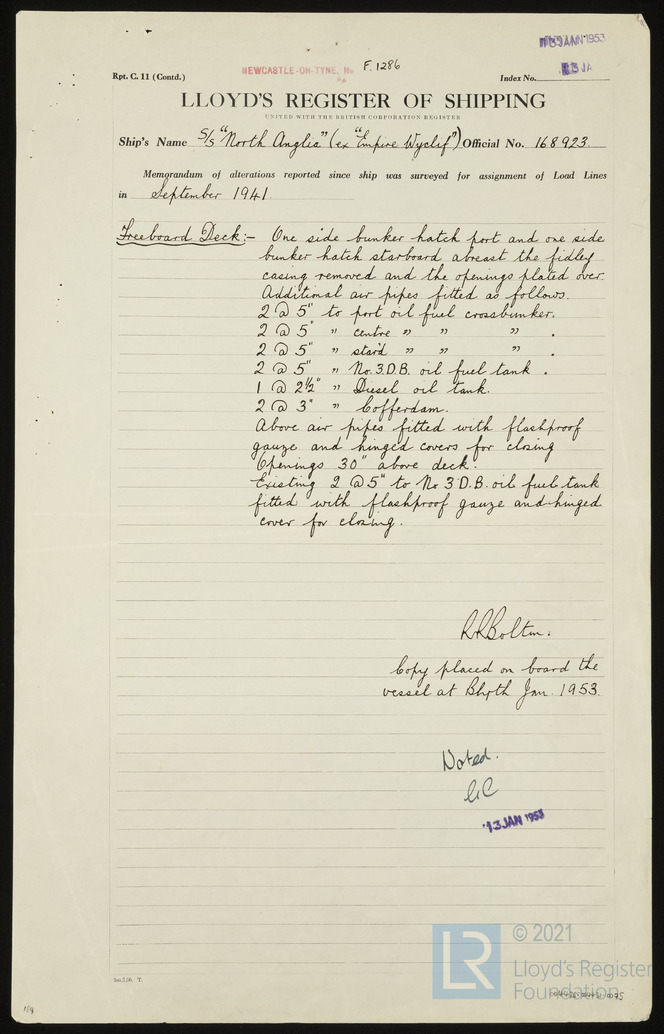 13 JAN 1953
NEWCASTLE-ON-TYNE. No F.1286
Rpt. C. 11 (Contd.) Index No.
LLOYD'S REGISTER OF SHIPPING
UNITED WITH THE BRITISH CORPORATION REGISTER
Ship's Name S/S "North Anglia" (ex "Empire Wyclif") Official No. 168923.
Memorandum of alterations reported since ship was surveyed for assignment of Load Lines
in September 1941.
Freeboard Deck:- One side bunker hatch port and one side
bunker hatch starboard abreast the fidley
casing removed and the openings plated over.
Additional air pipes fitted as follows.
2 @ 5" to port oil fuel crossbunker.
2 @ 5" " centre " " " .
2 @ 5" " stard " " " .
2 @ 5" " No. 3.D.B. oil fuel tank .
1 @ 2½" " Diesel oil tank.
2 @ 3" " Cofferdam.
Above air pipes fitted with flashproof
gauze and hinged covers for closing
Openings 30" above deck.
Existing 2 @ 5" to No 3 D.B. oil fuel tank
fitted with flashproof gauze and hinged
cover for closing.
R R Bolton.
Copy placed on board the
vessel at Blyth Jan. 1953.
Noted.
13 JAN 1953
© 2021
LR
Lloyd's Register
Foundation